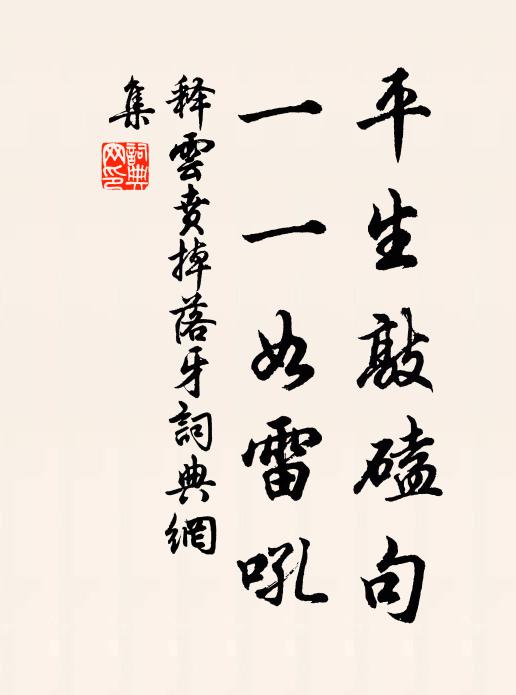 平生敲磕句
一一如雷吼
释雲贲掉落牙詞典網
集
詞典網印